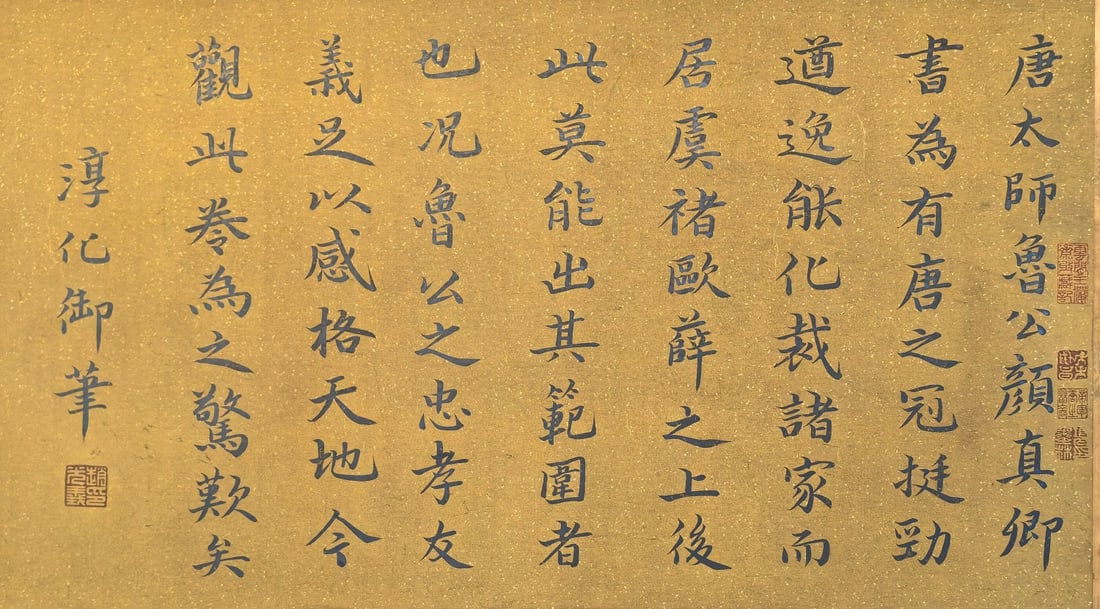 唐太師魯公顏真卿
書為有唐之冠挺勁
遒逸能化裁諸家而
居虞褚歐薛之上後
此莫能出其範圍者
也况魯公之忠孝友
義足以感格天地今
觀此卷為之驚歎矣
淳化御筆